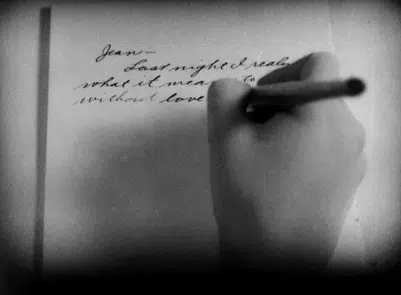 Jean—
Last night I realiz
what it mea to
without love